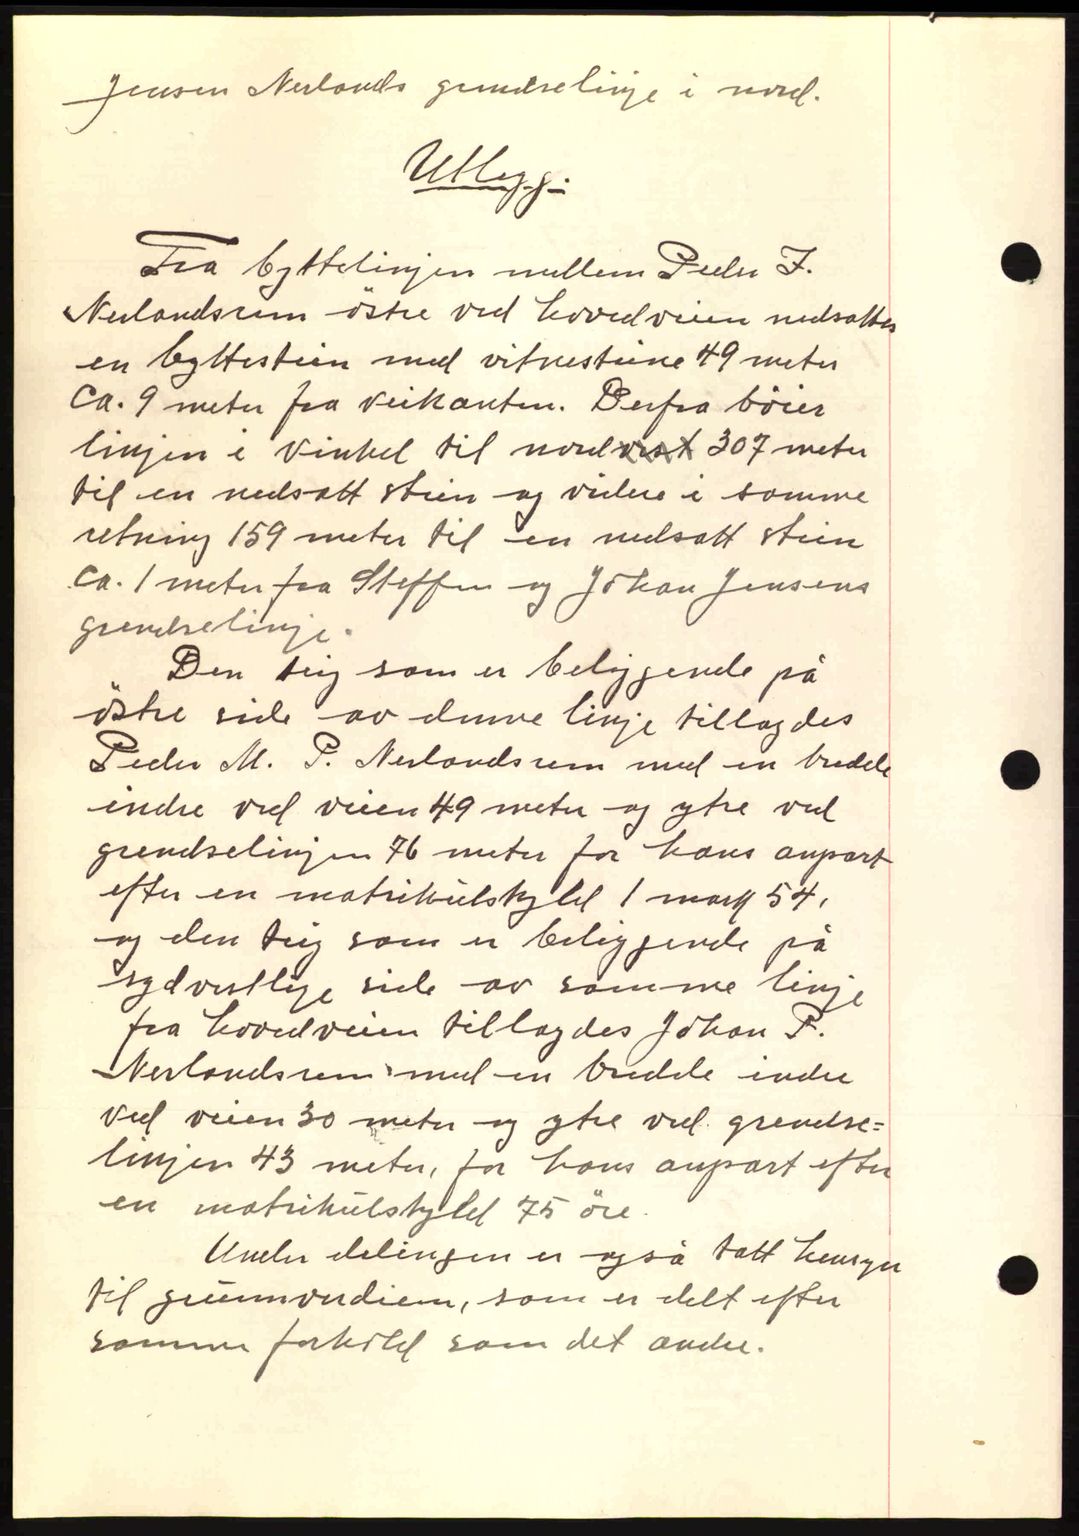 Jensen Nerlands grendselinje i nord.
Utlegg:
Fra byttelinjen mellem Peder J.
Nerlandsrem östre ved hovedveien nedsattes
en byttestein med vitnesteine 49 meter
ca. 9 meter fra veikanten. Derfra böier
linjen i vinkel til nordvest 307 meter
til en nedsatt stein og videre i samme
retning 159 meter til en nedsatt stein
ca. 1 meter fra Steffen og Johan Jensens
grendselinje.
Den teig som er beliggende på
östre side av denne linje tillagdes
Peder M. P. Nerlandsrem med en bredde
indre ved veien 49 meter og ytre ved
grendselinjen 76 meter for hans anpart
efter en matrikulskyld 1 mark 54,
og den teig som er beliggende på
sydvestlige side av samme linje
fra hovedveien tillagdes Johan P.
Nerlandsrem med en bredde indre
ved veien 30 meter og ytre ved grendse=
linjen 43 meter, for hans anpart efter
en matrikulskyld 75 öre.
Under delingen er også tatt hensyn
til grunnverdien, som er delt efter
samme forhold som det andre.